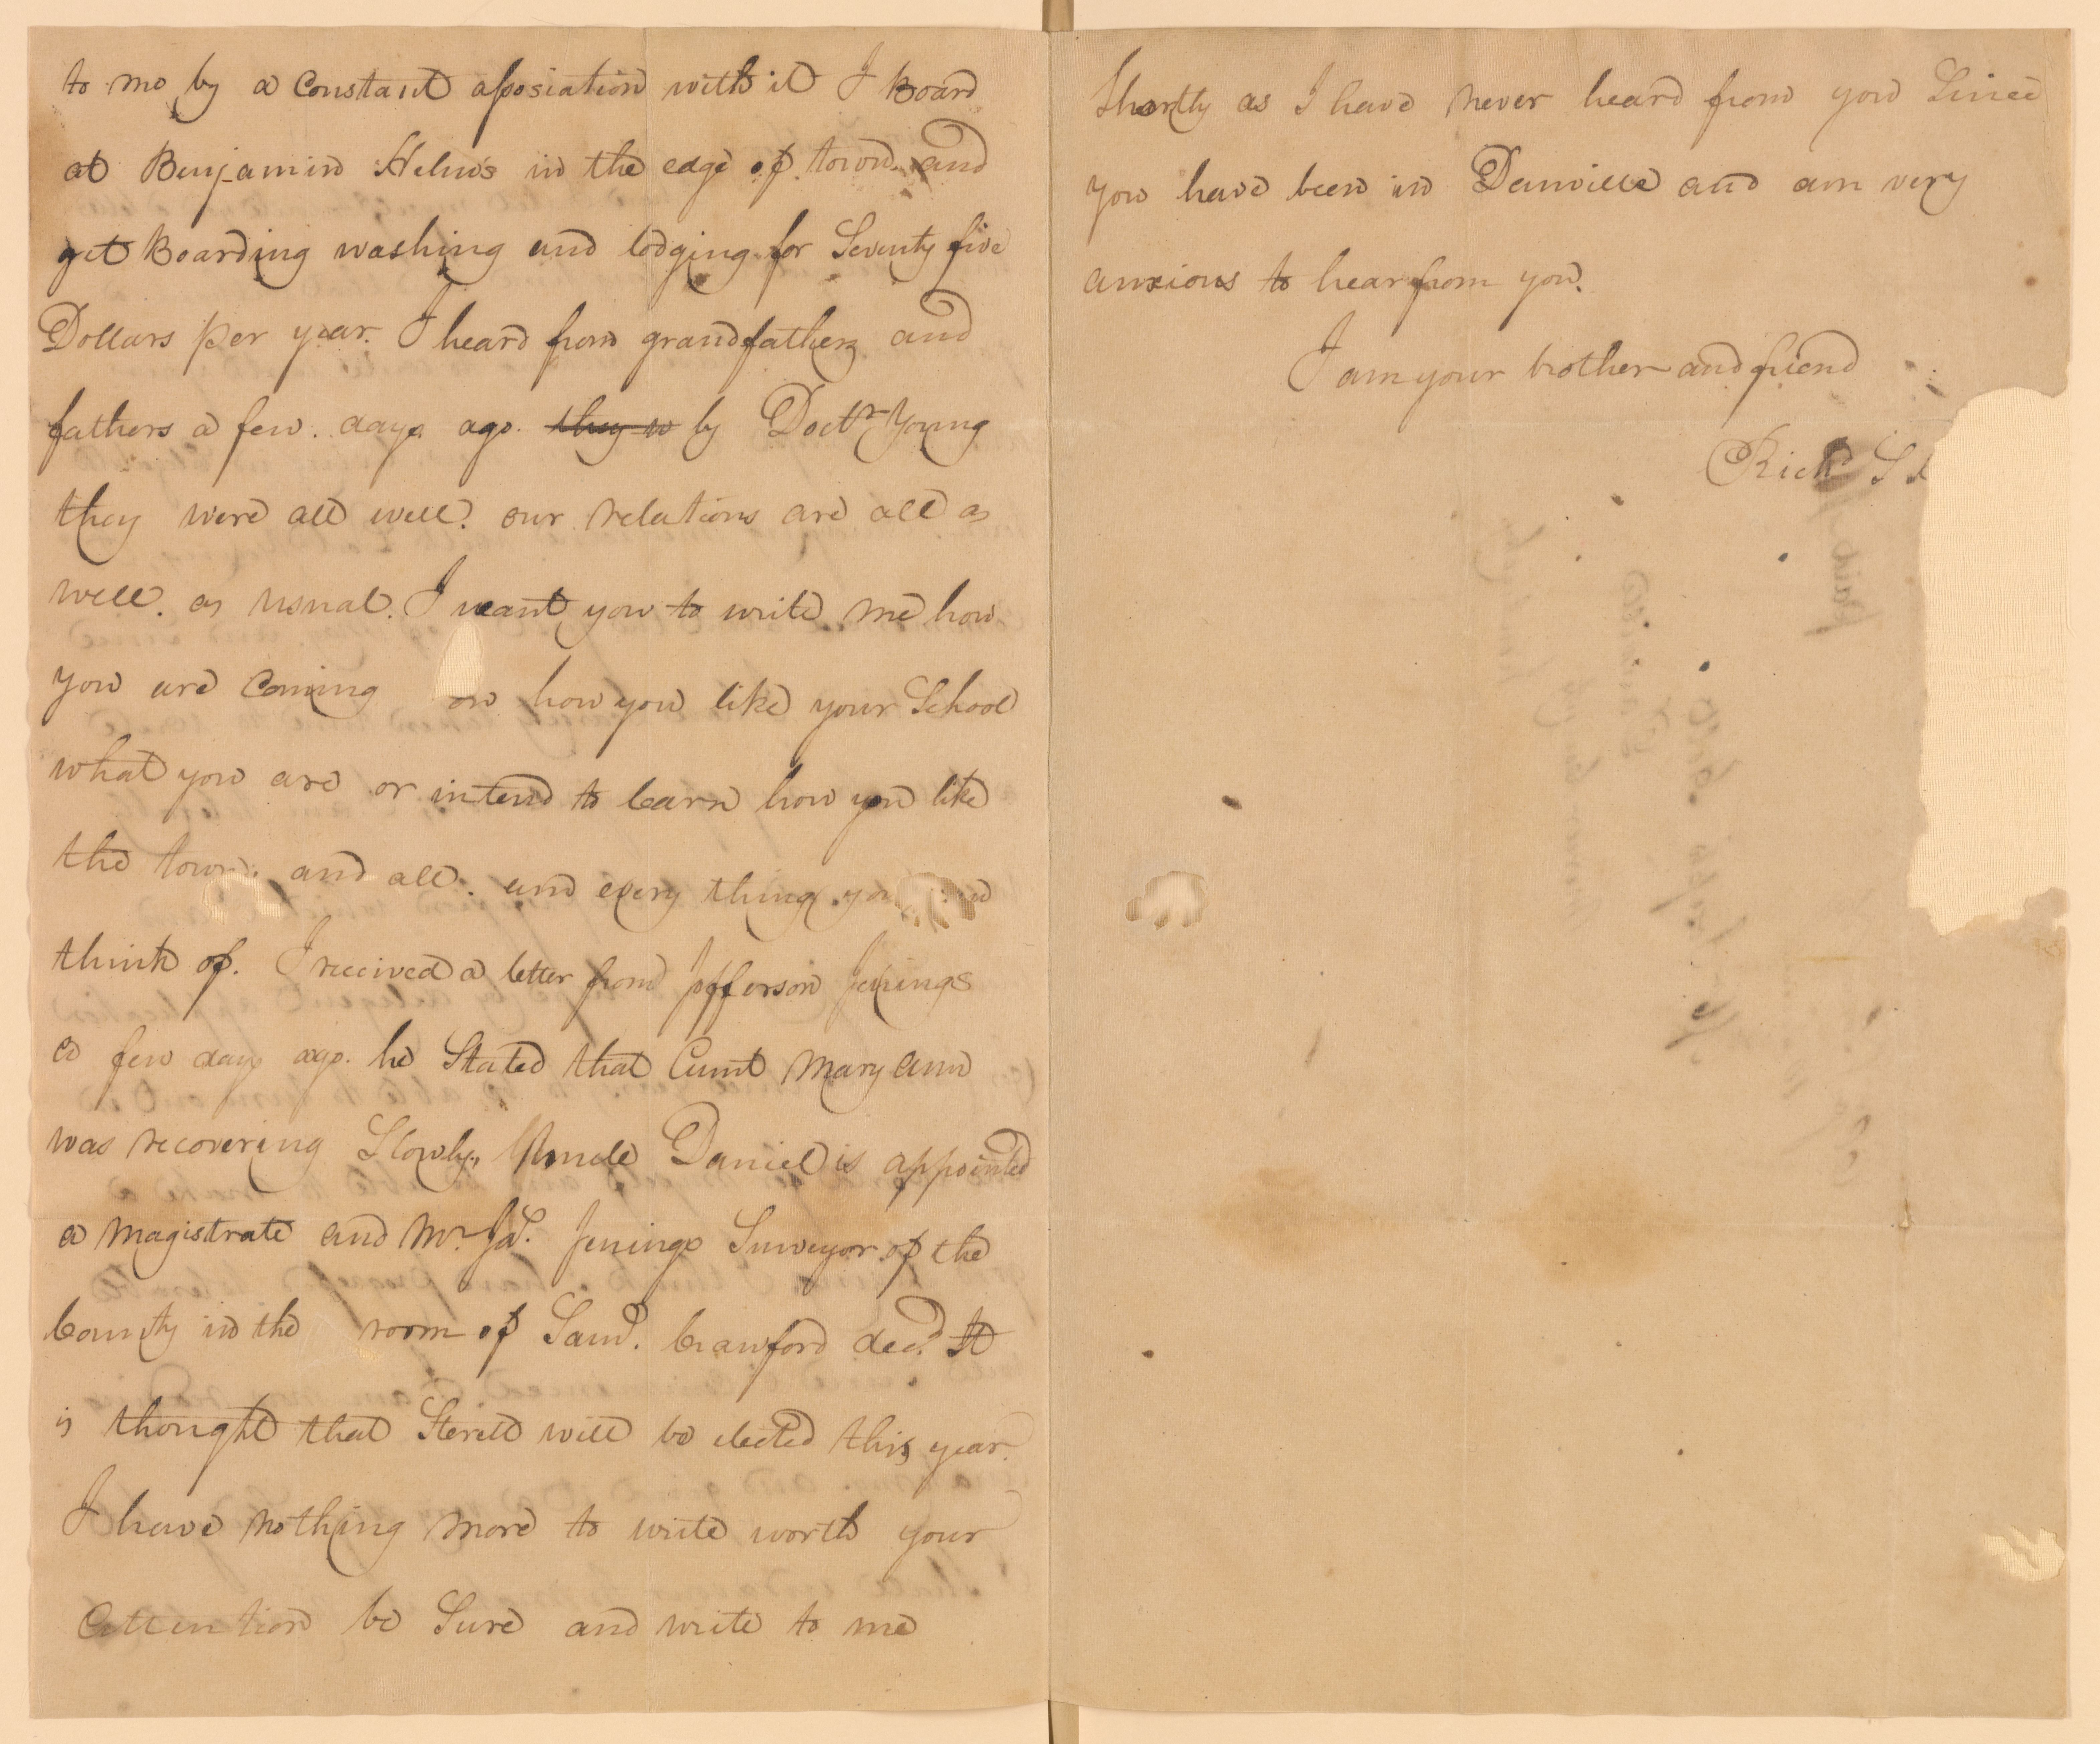 to me by a Constant assosiation with it I Board
at Benjamin Helm's in the edge of town. and
get Boarding washing and lodging for Seventy five
Dollars per year. I heard from grandfathers and
fathers a few. days ago. they w by Doctr Young
they were all well. our relations are all as
well. as usual. I want you to write me how
you are Coming on how you like your School
what you are or intend to learn how you like
the town. and all. and every thing you
think of. I received a letter from Jefferson Jenings
a few days ago. he Stated that Aunt Mary ann
was recovering Slowly, Uncle Daniel is appointed
a Magistrate and Mr. Jenings Surveyor of the
County in the room of Saml. Crawford decd. It
is thought that Sterett will be elected this year.
I have nothing more to write worth your
Attention be Sure and write to me
Shortly as I have never heard from you Since
you have been in Danville and am very
anxious to hear from you.
I am your brother and friend
Richd S